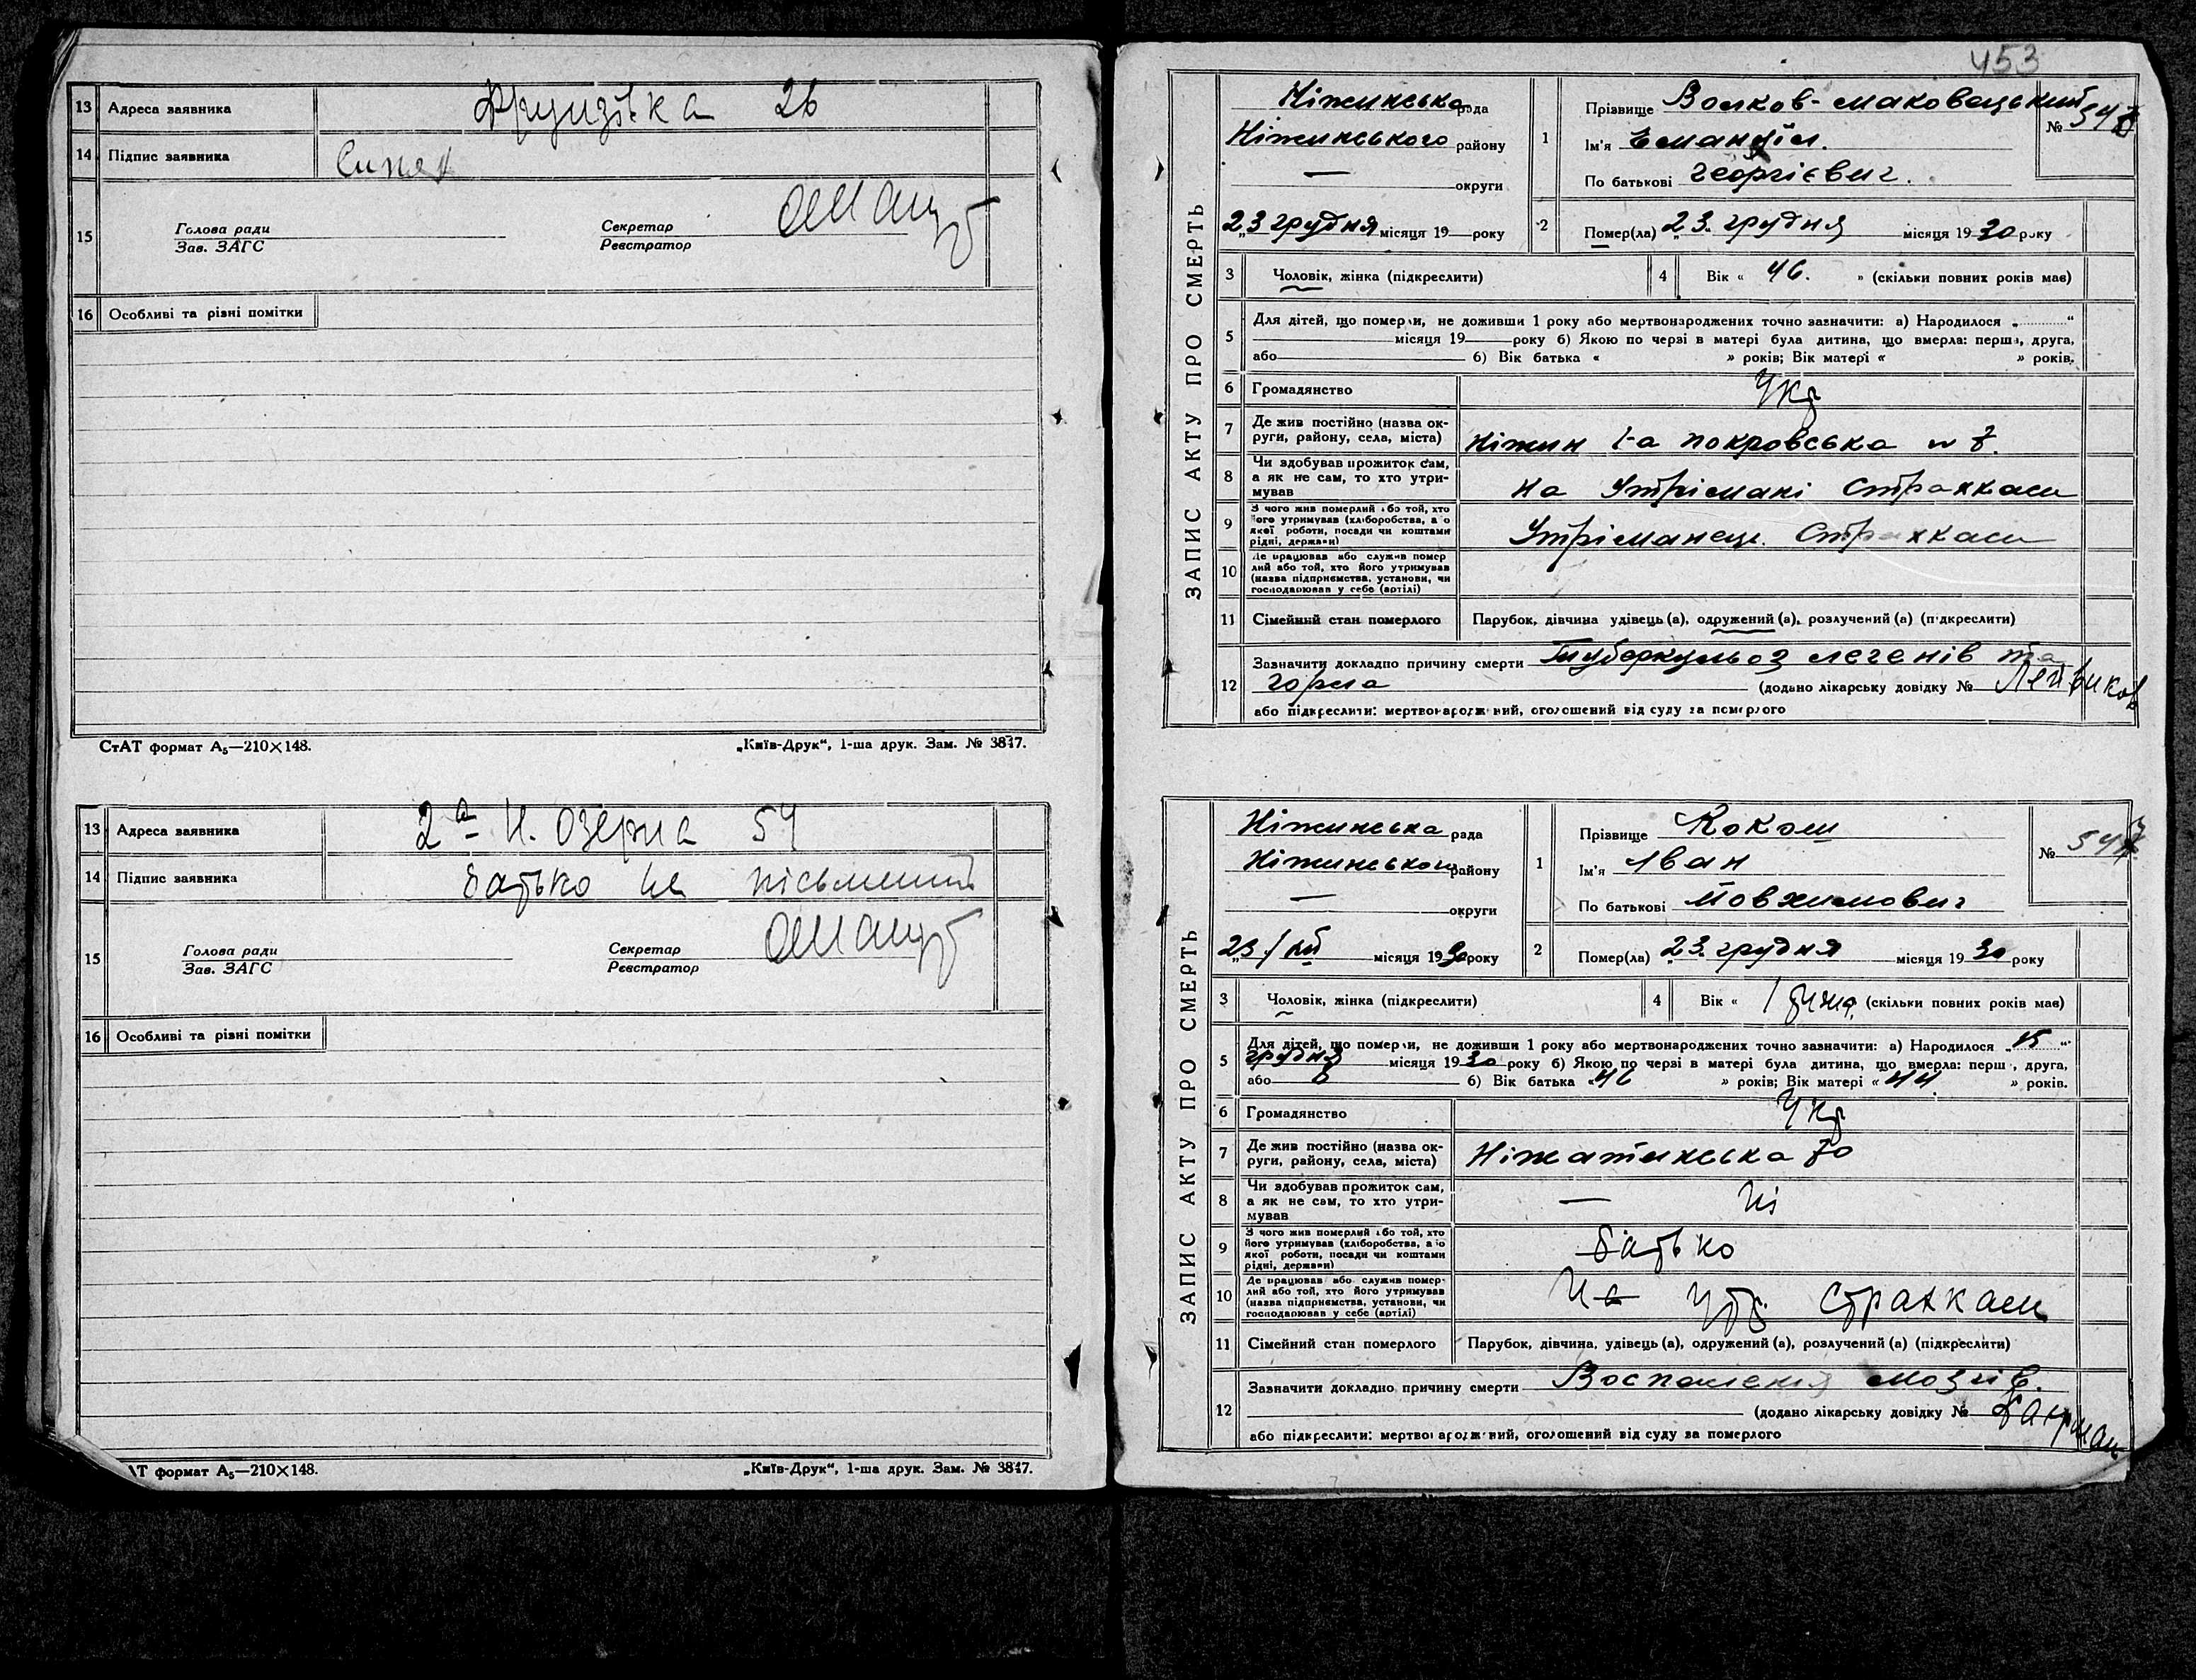 13 Адреса заявника Фрунзівка 26
14 Підпис заявника
15 Голова ради Секретар
Зав. ЗАГС Реєстратор
16 Особливі та різні помітки
СтАТ формат А₅—210×148. „Київ-Друк“, 1-ша друк. Зам. № 3847.
13 Адреса заявника 2а Н. Озерна 54
14 Підпис заявника батько не пісьменний
15 Голова ради Секретар
Зав. ЗАГС Реєстратор
16 Особливі та різні помітки
АТ формат А₅—210×148. „Київ-Друк“, 1-ша друк. Зам. № 3847.
453
ЗАПИС АКТУ ПРО СМЕРТЬ
Ніжинська рада
Ніжинського району
— округи
„23 грудня місяця 19 року
1 Прізвище Волков-маковецький
Ім'я Емануїл.
По батькові Георгієвич.
№ 54
2 Помер(ла) „23. грудня місяця 1930 року
3 Чоловік, жінка (підкреслити) 4 Вік « 46. » (скільки повних років має)
5 Для дітей, що померли, не доживши 1 року або мертвонароджених точно зазначити: а) Народилося „ “
місяця 19 року б) Якою по черзі в матері була дитина, що вмерла: перша, друга,
або б) Вік батька « » років; Вік матері « » років.
6 Громадянство Укр
7 Де жив постійно (назва ок-
руги, району, села, міста) Ніжин 1-а покровська № 7.
8 Чи здобував прожиток сам,
а як не сам, то хто утри-
мував на Утрімані Страхкаси
9 З чого жив померлий або той, хто
його утримував (хліборобства, а о
якої роботи, посади чи коштами
рідні, держави) Утріманець. Страхкаси
10 Де працював або служив помер
лий або той, хто його утримував
(назва підприємства, установи, чи
господарював у себе (артілі)
11 Сімейний стан померлого Парубок, дівчина удівець (а), одружений (а), розлучений (а) (підкреслити)
12 Зазначити докладно причину смерти Туберкульоз легенів та
горла (додано лікарську довідку №
або підкреслити: мертвонароджений, оголошений від суду за померлого
ЗАПИС АКТУ ПРО СМЕРТЬ
Ніжинська рада
Ніжинського району
— округи
„23/XII місяця 1930 року
1 Прізвище Кокош
Ім'я Іван
По батькові Йовхимович
№ 547
2 Помер(ла) „23. грудня місяця 1930 року
3 Чоловік, жінка (підкреслити) 4 Вік « (скільки повних років має)
5 Для дітей, що померли, не доживши 1 року або мертвонароджених точно зазначити: а) Народилося „15“
грудня місяця 1930 року б) Якою по черзі в матері була дитина, що вмерла: перша, друга,
або 6 б) Вік батька «46 » років; Вік матері «44 » років.
6 Громадянство Укр
7 Де жив постійно (назва ок-
руги, району, села, міста) Ніжатинська 70
8 Чи здобував прожиток сам,
а як не сам, то хто утри-
мував — Ні
9 З чого жив померлий або той, хто
його утримував (хліборобства, або
якої роботи, посади чи коштами
рідні, держави) батько
10 Де працював або служив помер-
лий або той, хто його утримував
(назва підприємства, установи, чи
господарював у себе (артілі) На утр. страхкаси
11 Сімейний стан померлого Парубок, дівчина, удівець (а), одружений (а), розлучений (а) (підкреслити)
12 Зазначити докладно причину смерти Воспаления мозгів.
(додано лікарську довідку №
або підкреслити: мертвонароджений, оголошений від суду за померлого